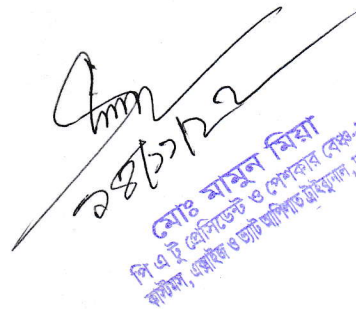 ২৪/১১/২২
মোঃ মামুন মিয়া
পি এ টু প্রেসিডেন্ট ও পেশকার বেঞ্চ
কাস্টমস, এক্সাইজ ও ভ্যাট আপিলাত ট্রাইব্যুনাল,